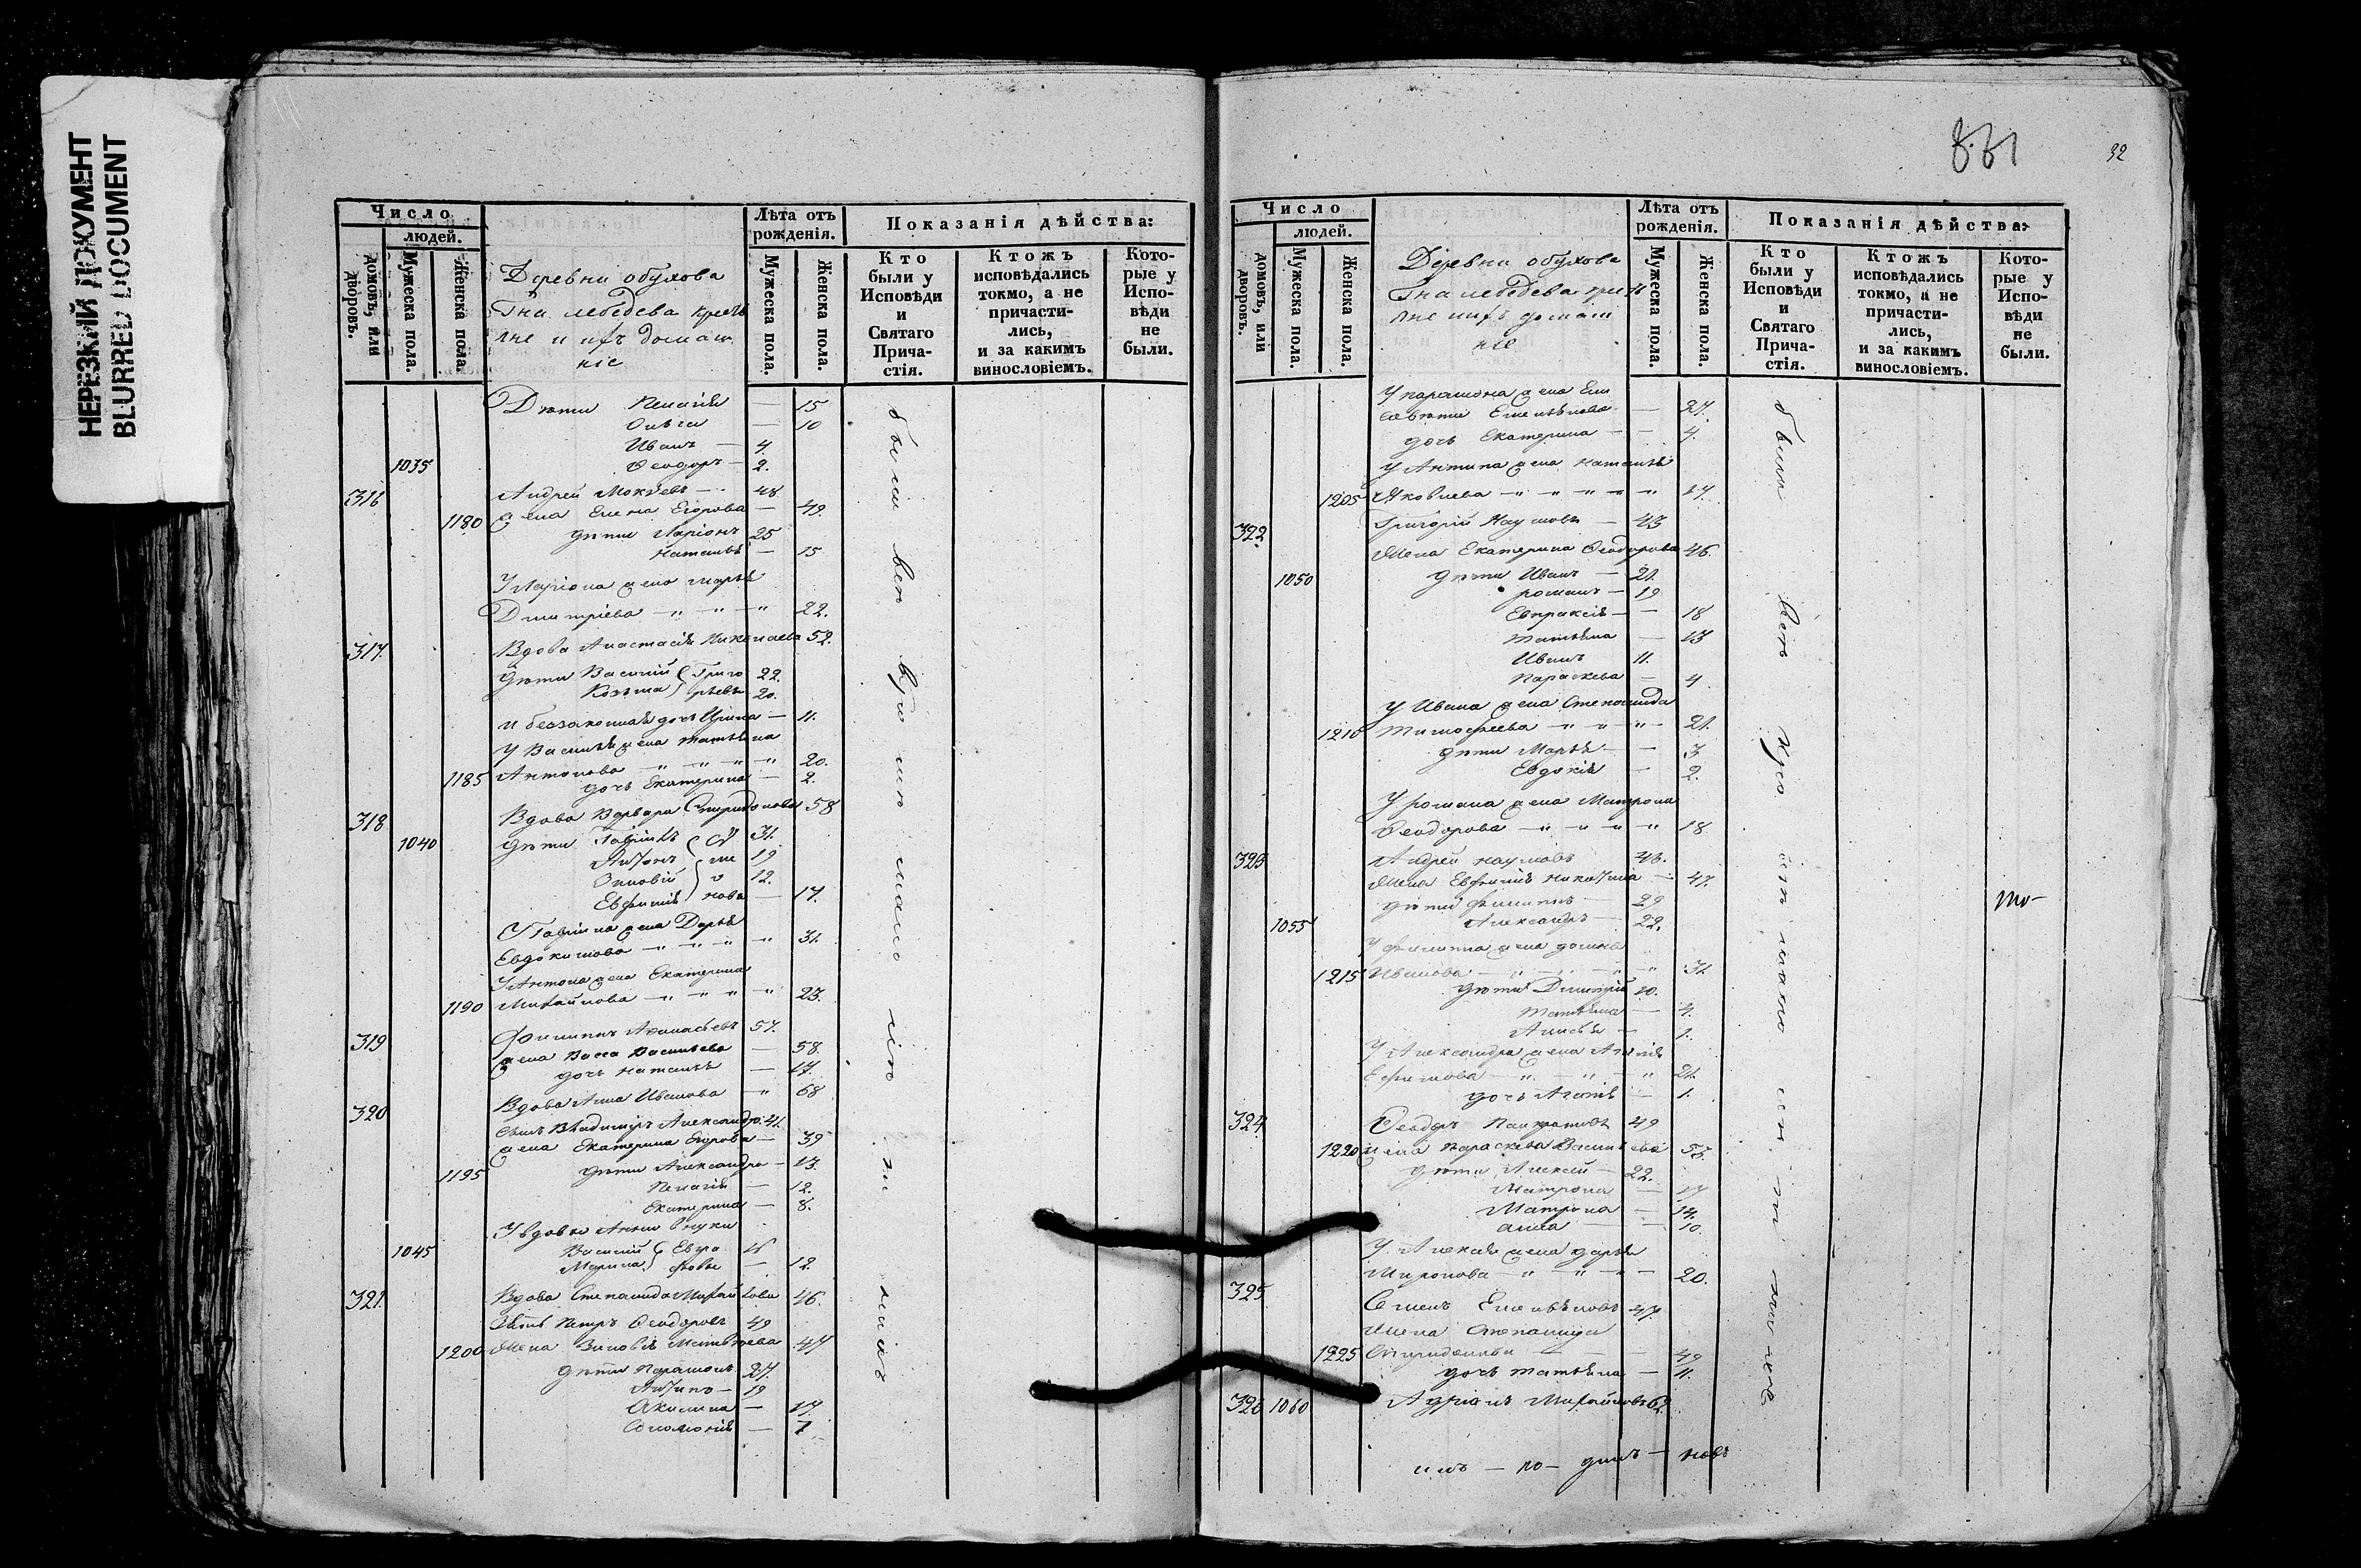 НЕРЕЗКИЙ ДОКУМЕНТ
BLURRED DOCUMENT
Число
людей.
домовъ, или дворовъ.
Мужеска пола.
Женска пола.
Деревни обухова
Гна лебедева крестья
не и ихъ домаш
ніе
Лѣта отъ рожденія.
Мужеска пола.
Женска пола.
Показанія дѣйства:
Кто были у Исповѣди и Святаго Прича-стія.
Ктожъ исповѣдались токмо, а не причасти-лись, и за какимъ винословіемъ.
Кото-рые у Испо-вѣди не были.
Дѣти Пелагія — 15
Ольга — 10
Иванъ — 4.
1035 Ѳеодоръ — 2.
316 Андрей Мокѣевъ — 48
1180 жена Елена Егорова — 49.
дѣти Ларіонъ 25
Наталья — 15
У Ларіона жена Марья
Дмитріева — " — " — " 22.
317. Вдова Анастасія Николаева 52.
дѣти Василій Григо 22.
Козьма рьевы 20.
и беззаконная дочь Ирина — 11.
У Василья жена Татьяна
1185 Антонова — " — " — " 20.
дочь Екатерина — 2.
318 Вдова Варвара Спиридонова 58
1040 дѣти Гаврiилъ 31.
Антонъ 19
Зиновій 12.
Евфимія нова — 17.
У Гавріила жена Дарья
Евдокимова — " — " — " 31.
У Антона жена Екатерина
1190 Михайлова — " — " — " 23.
319 Филиппъ Аѳанасьевъ 57.
жена Васса Васильева — 58.
дочь Наталья — 17.
320 Вдова Анна Иванова " 68
сынъ Владиміръ Александро. 41.
жена Екатерина Егорова — 39
1195 дѣти Александра — 13.
Пелагія — 12.
Екатерина — 8.
У вдовы Анны внуки
1045 Василій Евгра
Марина фовы — 12.
321. Вдова Степанида Михайлова 46.
зять Петръ Ѳеодоровъ 49
1200 Жена Зиновія Матвѣева 47
дѣти Парамонъ 27.
Антипъ — 19
Акилина — 17.
Соломонія — 7
были
вси
32
Число
людей.
домовъ, или дворовъ.
Мужеска пола.
Женска пола.
Деревни обухова
Гна лебедева крестья
не и ихъ домаш
ніе
Лѣта отъ рожденія.
Мужеска пола.
Женска пола.
Показанія дѣйства:
Кто были у Исповѣди и Святаго Прича-стія.
Ктожъ исповѣдались токмо, а не причасти-лись, и за какимъ винословіемъ.
Кото-рые у Испо-вѣди не были.
У парамона жена Ели
савѣта Емельянова — 27.
дочь Екатерина — — 4.
У Антипа жена Наталья
1205 Яковлева — " — " — " 17.
322. Григорій Наумовъ — 43
Жена Екатерина Ѳеодорова 46.
1050 дѣти Иванъ — 21.
романъ — 19
Евпраксія — — 18
Татьяна — 13
Иванъ 11.
Параскева — 4
У Ивана жена Степанида
1210 Тимофеева — " — " — " 21.
дѣти Марья — — 3
Евдокія — 2.
У романа жена Матрона
Ѳеодорова — " — " — " 18.
323 Андрей наумовъ 48.
Жена Евфимія никитина — 47.
дѣти Филиппъ — 29
1055 Александръ — 22.
У филиппа жена домна
1215 Иванова — " — " — " 31.
дѣти Дмитрій 10.
Татьяна — 4.
Анисья — 1.
У Александра жена
Ефимова — " — " — " 21.
дочь Агапія — 1.
324. Ѳеодоръ Панкратовъ 49
1220 жена Параскева Васильева 53.
дѣти Алексей — 22.
Матрона — 17
Матрона — 14.
анна — 10.
У Алексея жена дарья
Миронова — " — " — 20.
325 Семенъ Емельяновъ 47.
Жена Степанида
1225 Спиридонова — — — 49
дочь татьяна — 11.
326 1060 Адріанъ Михайловъ 62.
были
вси
то-